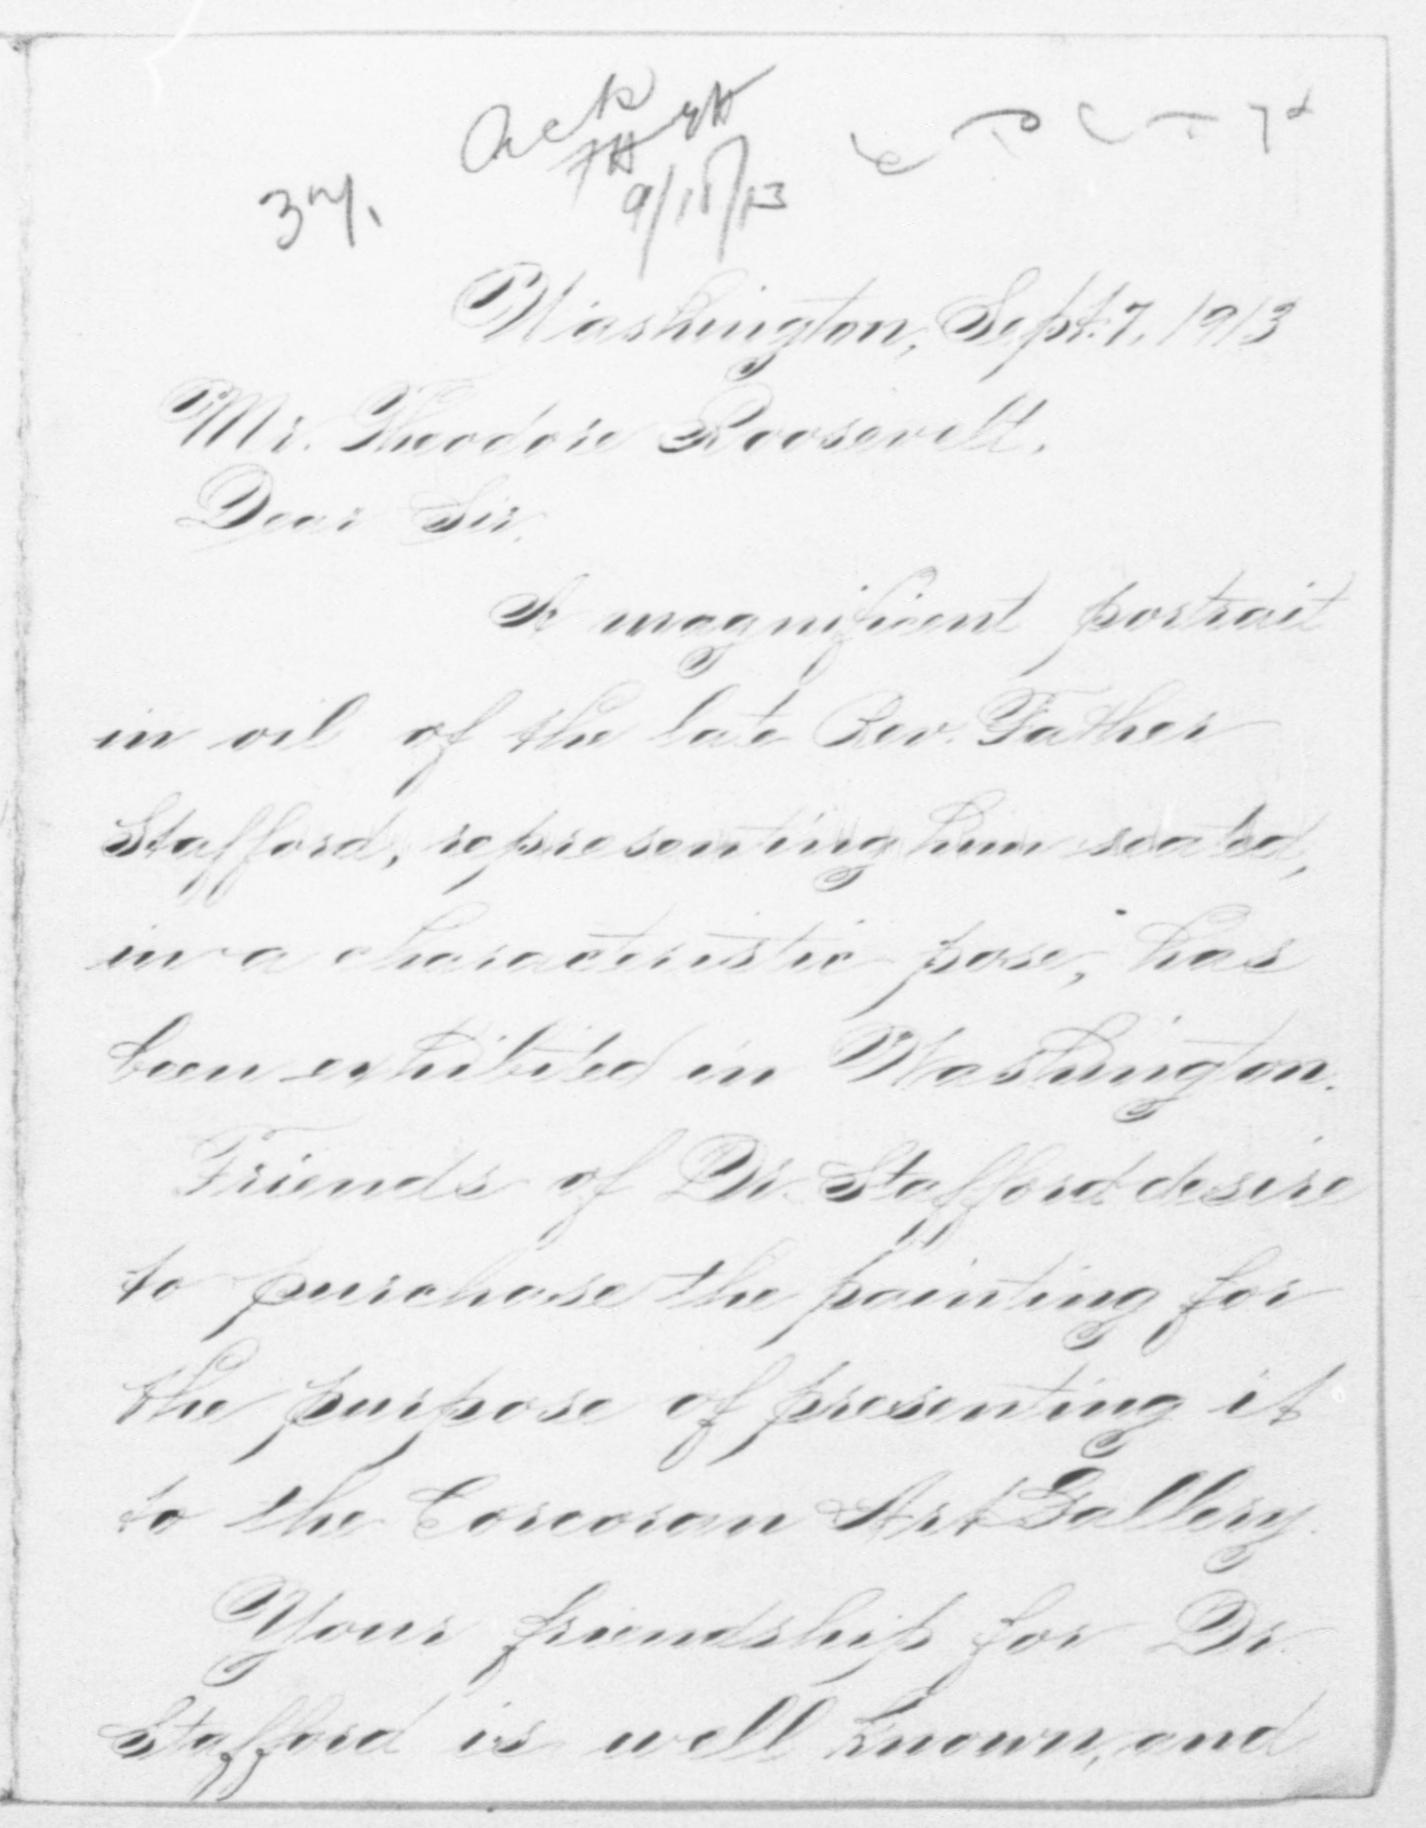 Ack
9/15/13
Washington, Sept. 7, 1913
Mr. Theodore Roosevelt.
Dear Sir,
A magnificent portrait
in oil of the late Rev. Father
Stafford, representing him seated,
in a characteristic pose, has
been exhibited in Washington.
Friends of Dr. Stafford desire
to purchase the painting for
the purpose of presenting it
to the Corcoran Art Gallery.
Your friendship for Dr.
Stafford is well known, and